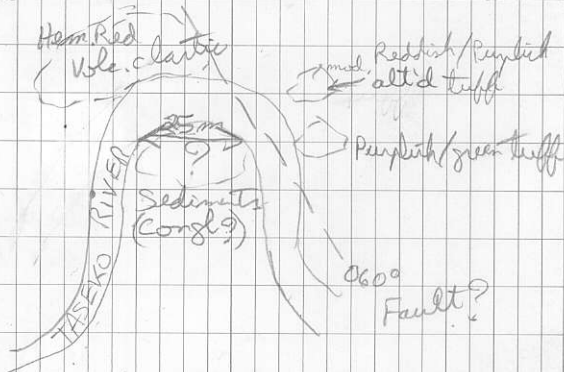 Hem. Red
Volc. clastic
mod. Reddish/Purplish
alt'd tuff
25m
?
Purplish/green tuff
Sediments
(Congl?)
TASEKO RIVER
060°
Fault?